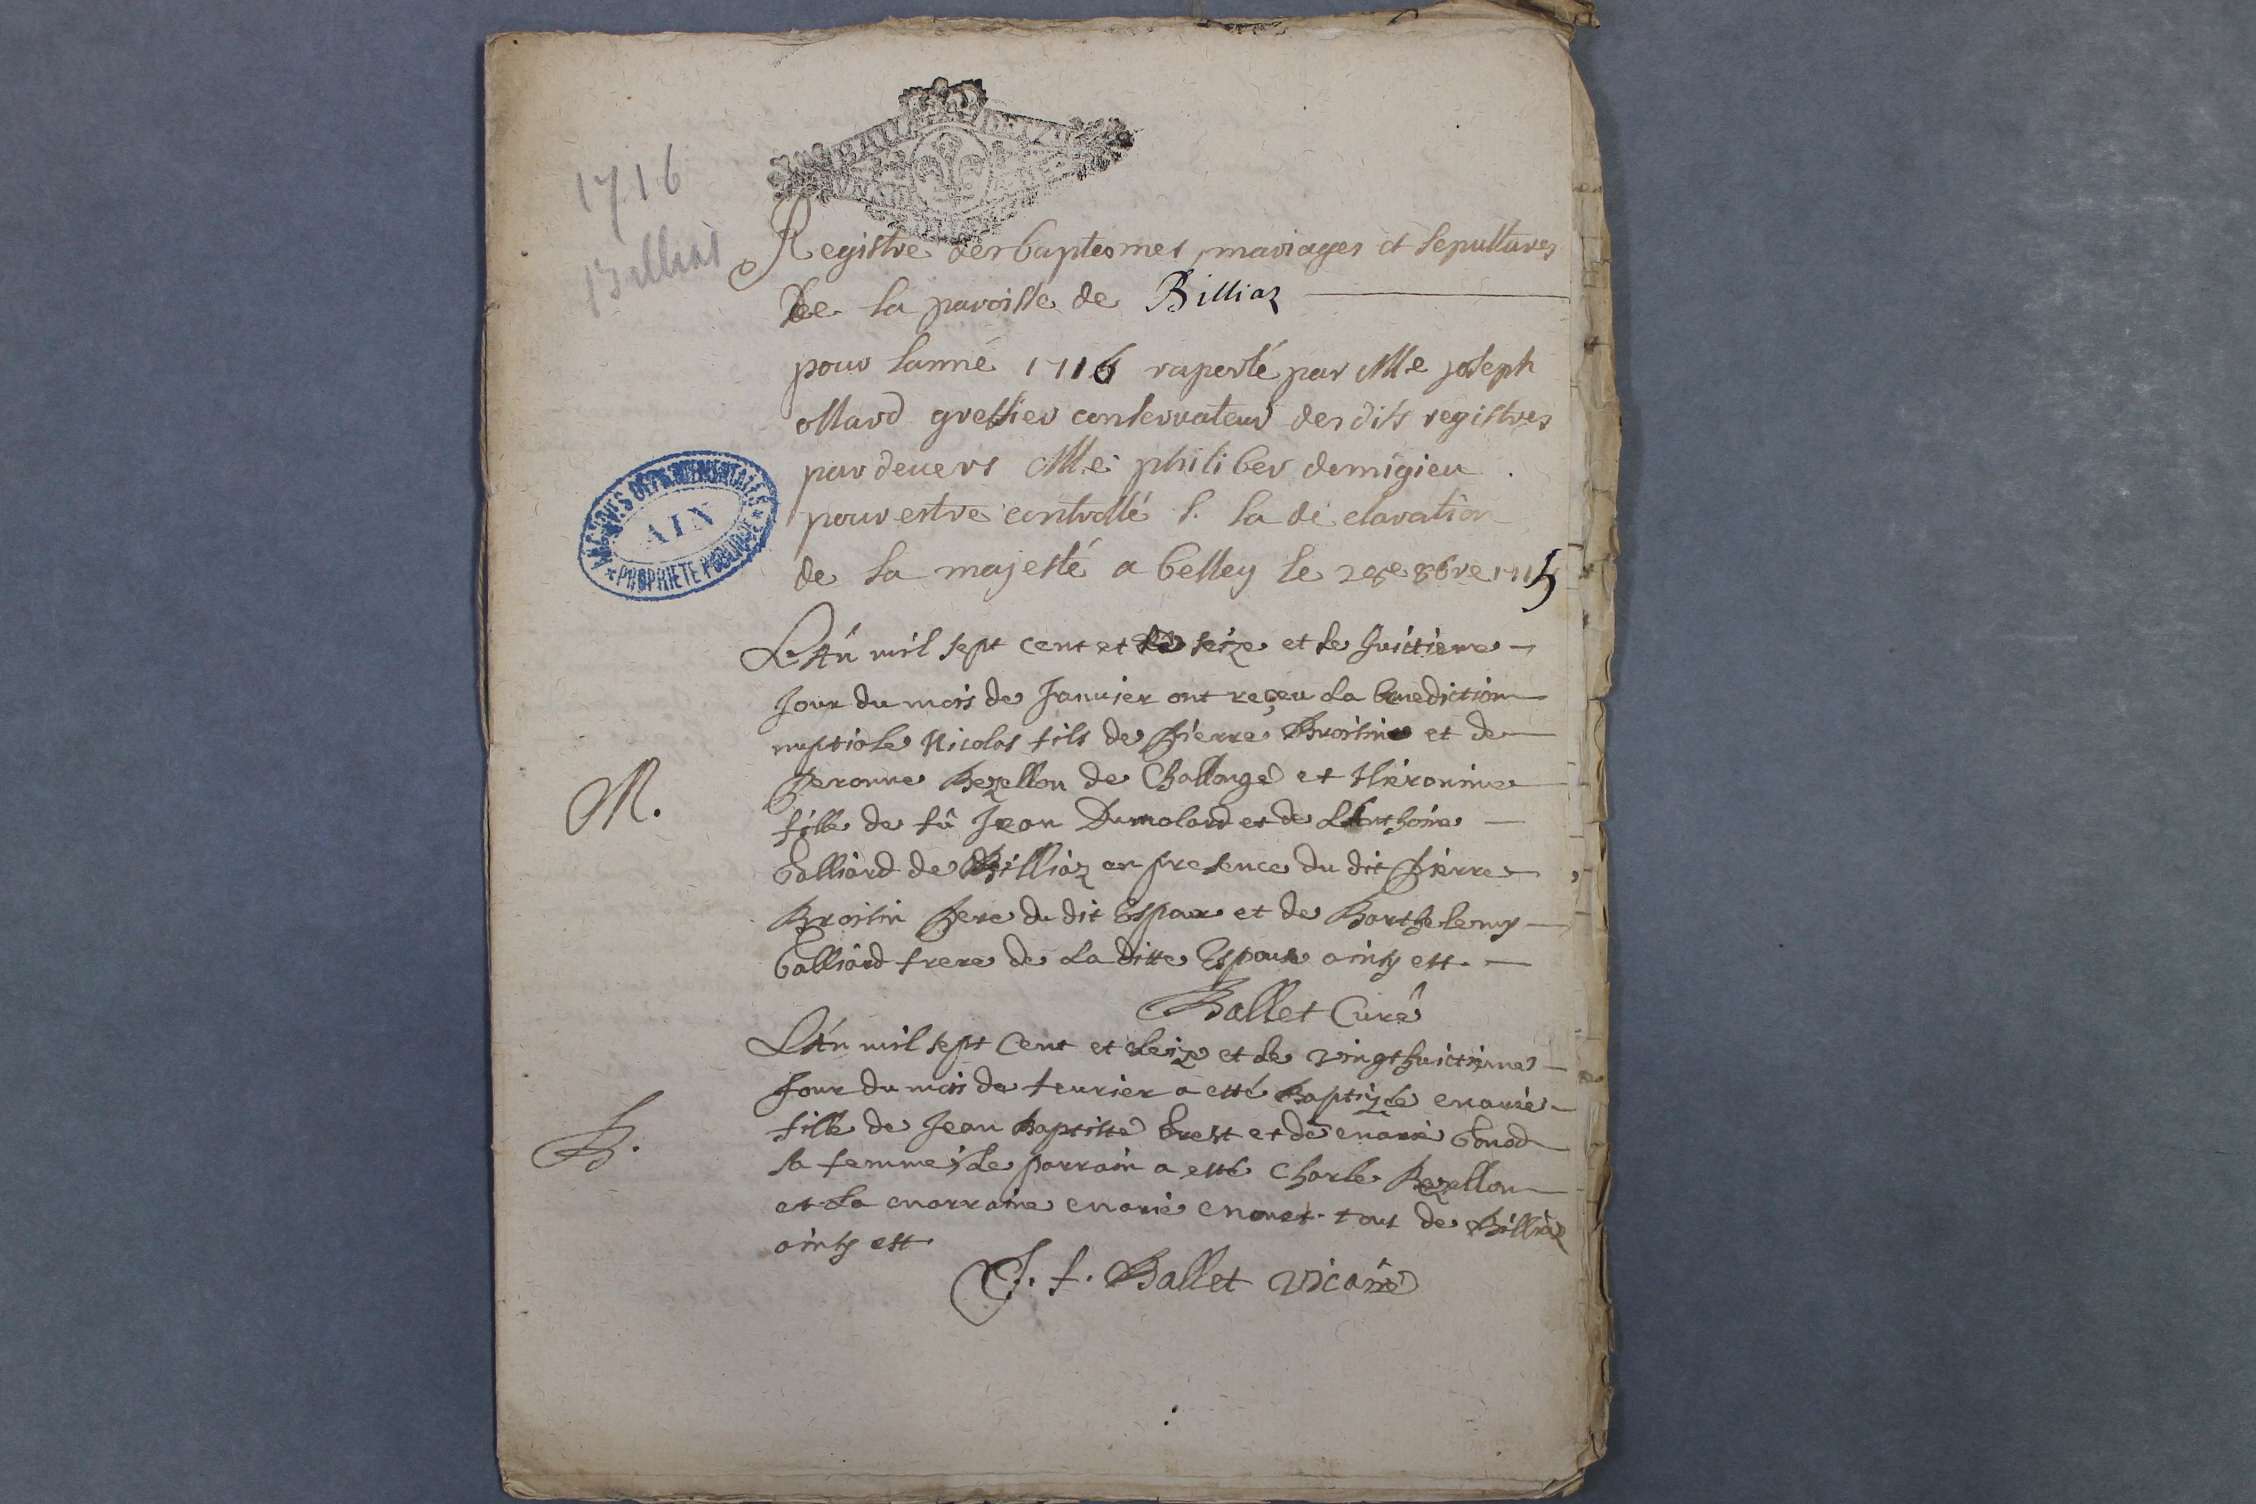 1716
Billias
Registre des baptesmes, mariages et sepultures
De la paroisse de Billiaz
pour lanné 1716 raporté par Me joseph
ollard greffier conservateur des dits registres
par devers Me philiber demigieu
pour estre controllé s. la de claration
de sa majesté a belley le 28e 8bre 1715
ARCHIVES DEPARTEMENTALES
AIN
PROPRIETE PUBLIQUE
L'An mil sept cent et seize et le huictieme
Jour du mois de Januier ont reçeu La benediction
nuptiale Nicolas fils de Pierre Broisin et de
M.
Peronne Bezellon de Challonge et Hieronime
fille de fû Jean Dumolard et de Anthoine
Galliard de Billiaz en presence du dit Pierre
Broisin Pere du dit Espoux et de Barthelemy
Galliard frere de La ditte Espouse ainsy est.
Ballet Curé
L'An mil sept Cent et seize et Le vingthuictieme
Jour du mois de feurier a esté Baptizée marie
B.
fille de Jean Baptiste et de marie
sa femme; Le parrain a esté Charle Bezellon
et La marraine marie tous de Billiaz
ainsy est
J. f. Ballet vicaire